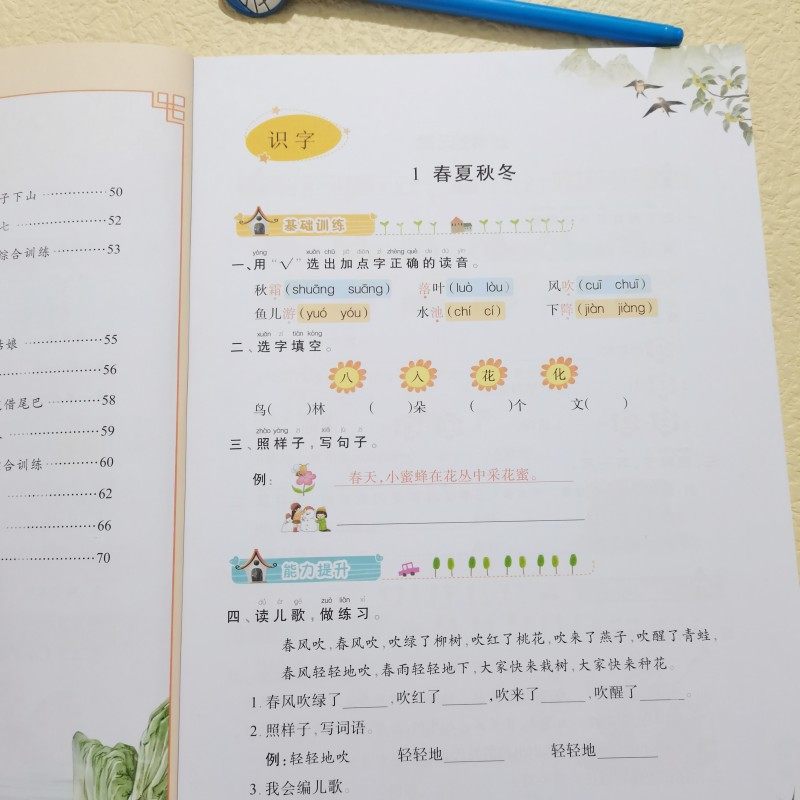 子下山 ············ 50
七 ············ 52
综合训练 ············ 53
姑娘 ············ 55
············ 56
借尾巴 ············ 58
············ 59
合训练 ············ 60
············ 62
············ 66
············ 70
识字
1 春夏秋冬
基础训练
一、用“√”选出加点字正确的读音。
秋霜(shuāng suāng) 落叶(luò lòu) 风吹(cuī chuī)
鱼儿游(yuó yóu) 水池(chí cí) 下降(jiàn jiàng)
xuǎn zì tián kòng
二、选字填空。
八 入 花 化
鸟( )林 ( )朵 ( )个 文( )
三、照样子，写句子。
例： 春天，小蜜蜂在花丛中采花蜜。
能力提升
四、读儿歌，做练习。
春风吹，春风吹，吹绿了柳树，吹红了桃花，吹来了燕子，吹醒了青蛙，
春风轻轻地吹，春雨轻轻地下，大家快来栽树，大家快来种花。
1. 春风吹绿了_____，吹红了_____，吹来了_____，吹醒了_____。
2. 照样子，写词语。
例：轻轻地吹 轻轻地_______ 轻轻地_______
3. 我会编儿歌。